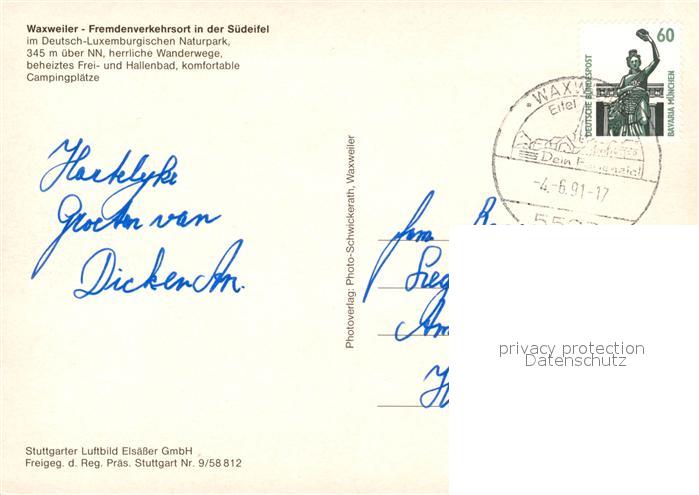 Waxweiler - Fremdenverkehrsort in der Südeifel
im Deutsch-Luxemburgischen Naturpark,
345 m über NN, herrliche Wanderwege,
beheiztes Frei- und Hallenbad, komfortable
Campingplätze
60
DEUTSCHE BUNDESPOST
BAVARIA MÜNCHEN
WAXW
Eifel
Dein
-4.-6.91-17
Hartelyke
Groeten van
Dick en An.
Photoverlag: Photo-Schwickerath, Waxweiler
Fam
Am
privacy protection
Datenschutz
Stuttgarter Luftbild Elsäßer GmbH
Freigeg. d. Reg. Präs. Stuttgart Nr. 9/58 812